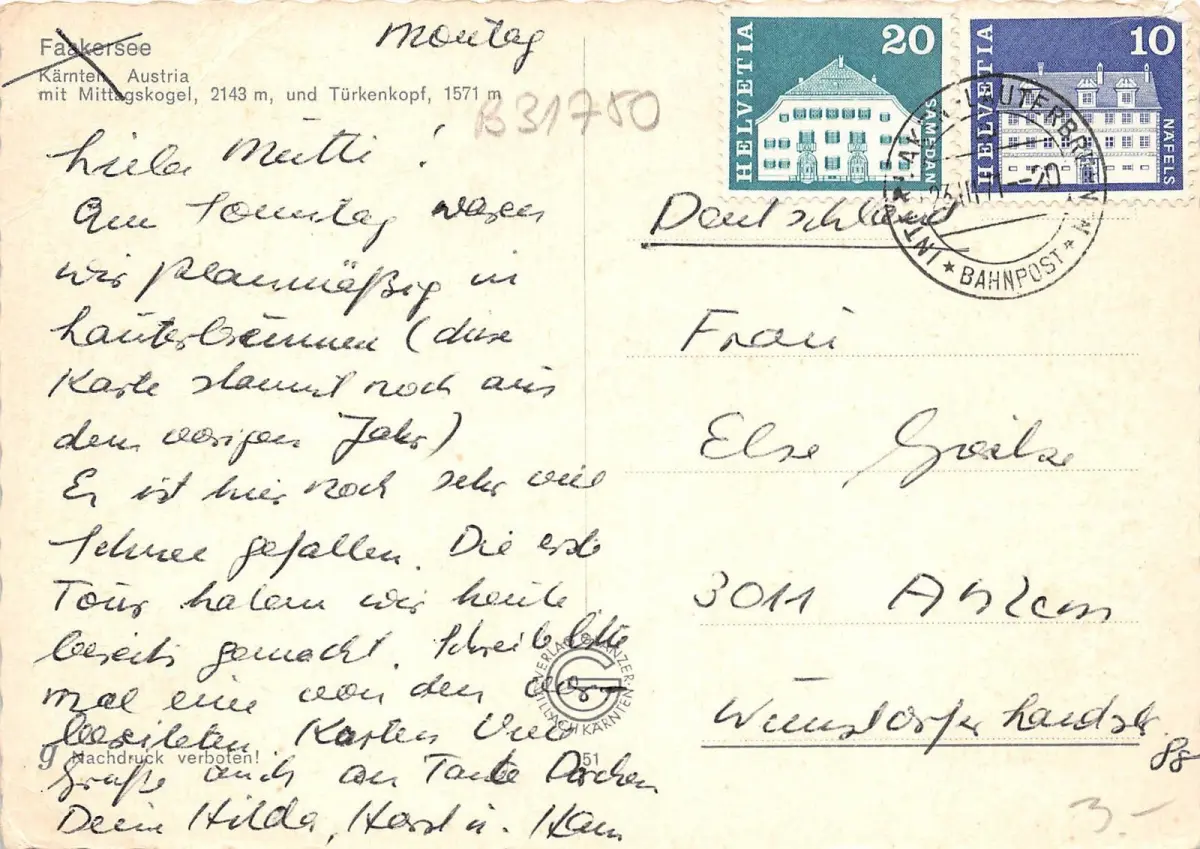 Faakersee
Kärnten, Austria
mit Mittagskogel, 2143 m, und Türkenkopf, 1571 m
Montag
B31750
Liebe Mutti!
Am Sonntag waren
wir planmäßig in
Lauterbrunnen (diese
Karte stammt noch aus
dem vorigen Jahr)
Es ist hier noch sehr viel
Schnee gefallen. Die erste
Tour haben wir heute
bereits gemacht. Schreib bitte
mal eine von den vor-
bereiteten Karten. Viele
Grüße auch an Tante Dorchen
Dein Hilda, Horst u.
g Nachdruck verboten!
51
VERLAG FRANZER
VILLACH KÄRNTEN
G
HELVETIA 20 SAMEDAN
HELVETIA 10 NÄFELS
INTERLAKEN-LAUTERBRUNNEN
23.III.71--20
★ BAHNPOST ★
Deutschland
Frau
Else
3011 Ahlem
Wunstorfer Landstr.
88
3.-